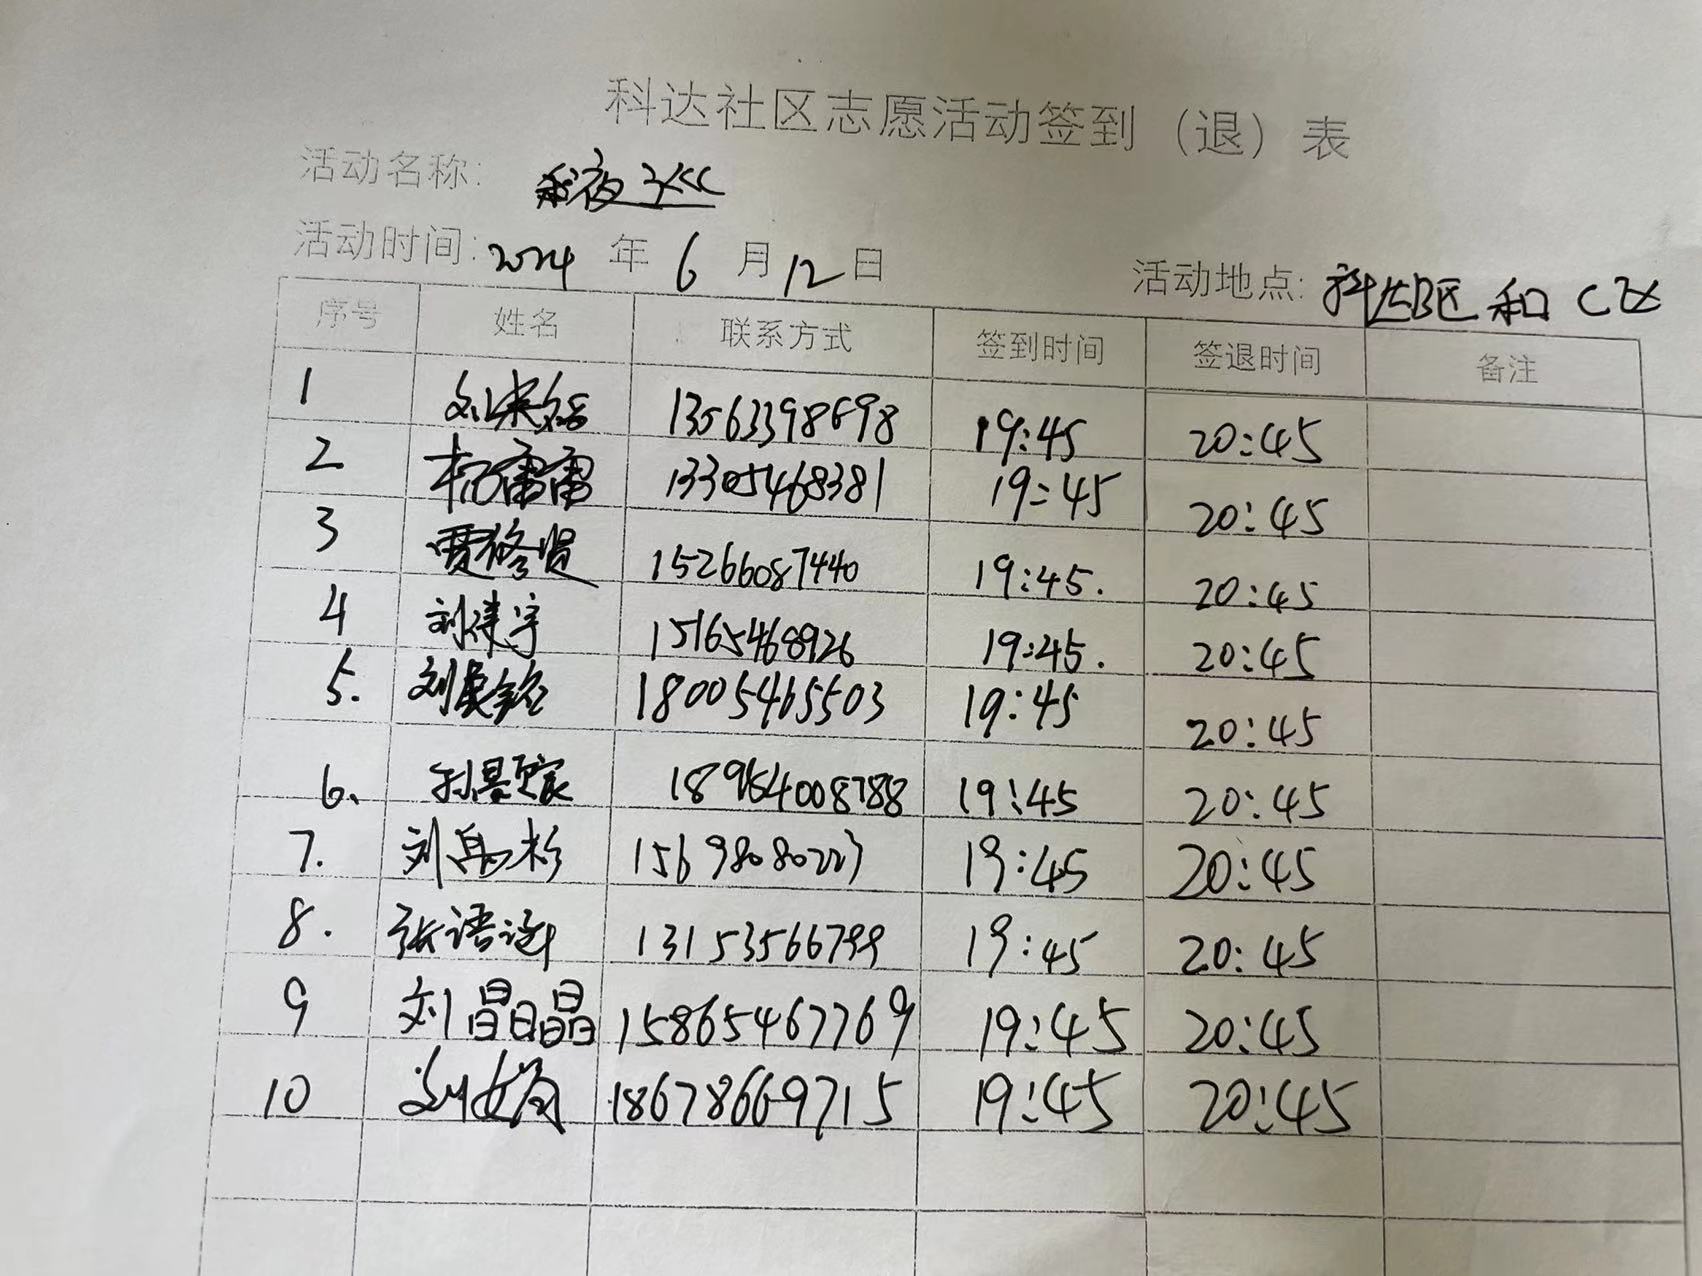 科达社区志愿活动签到（退）表
活动名称: 夜巡
活动时间: 2024 年 6 月 12 日 活动地点: 科达B区和C区
序号 姓名 联系方式 签到时间 签退时间 备注
1 13563398698 19:45 20:45
2 13305468381 19:45 20:45
3 贾修贤 15266087440 19:45. 20:45
4 刘建宇 15165468926 19:45. 20:45
5. 刘 18005465503 19:45 20:45
6、 189564008788 19:45 20:45
7. 刘 15698080223 19:45 20:45
8. 张语 13153566799 19:45 20:45
9 刘晶晶 15865467769 19:45 20:45
10 刘 18678669715 19:45 20:45